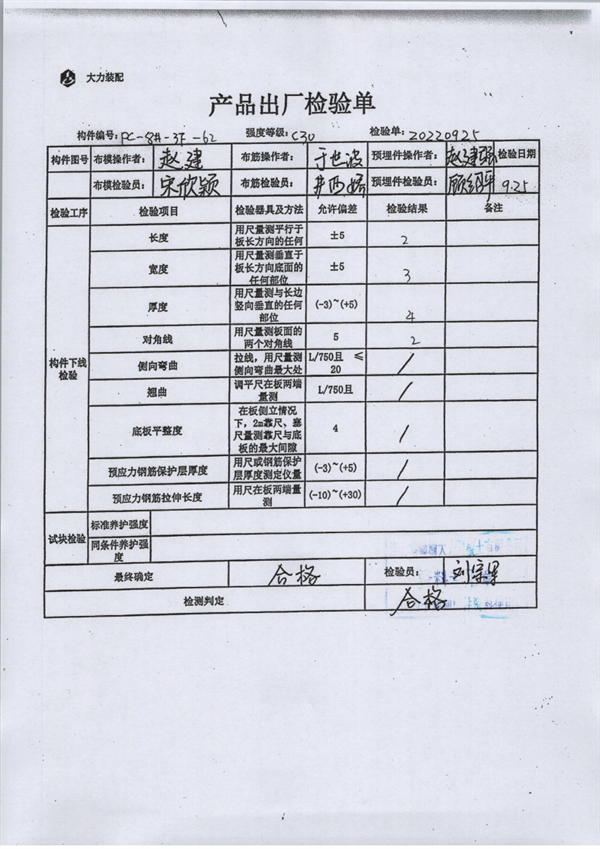 大力装配
产品出厂检验单
构件编号: PC-8#-3F-62 强度等级: C30 检验单: 20220925
构件图号 布模操作者: 赵建 布筋操作者: 于世波 预埋件操作者: 赵建 检验日期
布模检验员: 宋欣颖 布筋检验员: 预埋件检验员: 9.25
检验工序 检验项目 检验器具及方法 允许偏差 检验结果 备注
构件下线检验
长度 用尺量测平行于板长方向的任何 ±5 2
宽度 用尺量测垂直于板长方向底面的任何部位 ±5 3
厚度 用尺量测与长边竖向垂直的任何部位 (-3)~(+5) 4
对角线 用尺量测板面的两个对角线 5 2
侧向弯曲 拉线，用尺量测侧向弯曲最大处 L/750且 ≤20 /
翘曲 调平尺在板两端量测 L/750且 /
底板平整度 在板侧立情况下，2m靠尺、塞尺量测靠尺与底板的最大间隙 4 /
预应力钢筋保护层厚度 用尺或钢筋保护层厚度测定仪量 (-3)~(+5) /
预应力钢筋拉伸长度 用尺在板两端量测 (-10)~(+30) /
试块检验 标准养护强度
同条件养护强度
最终确定 合格 检验员: 刘宗
检测判定 合格